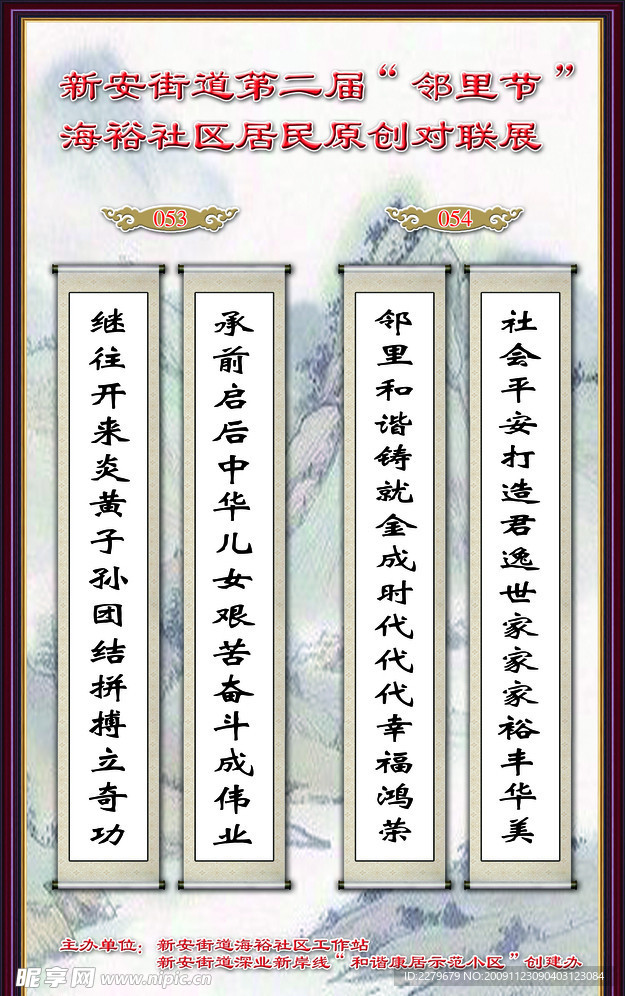 新安街道第二届“邻里节”
海裕社区居民原创对联展
053
054
继往开来炎黄子孙团结拼搏立奇功
承前启后中华儿女艰苦奋斗成伟业
邻里和谐铸就金成时代代代幸福鸿荣
社会平安打造君逸世家家家裕丰华美
主办单位：新安街道海裕社区工作站
新安街道深业新岸线“和谐康居示范小区”创建办
昵享网 www.nipic.cn
ID:2279679 NO:20091123090403123084